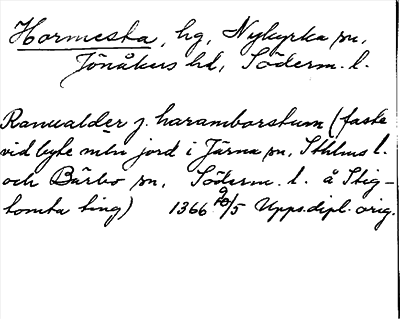 Hormesta, hg, Nykyrka sn,
Jönåkers hd, Söderm. l.
Ranualder j. haramborstum (faste
vid byte mln jord i Järna sn, Sthlms l.
och Bärbo sn, Söderm. l. å Stig-
tomta ting) 1366 20/5 Upps.dipl. orig.